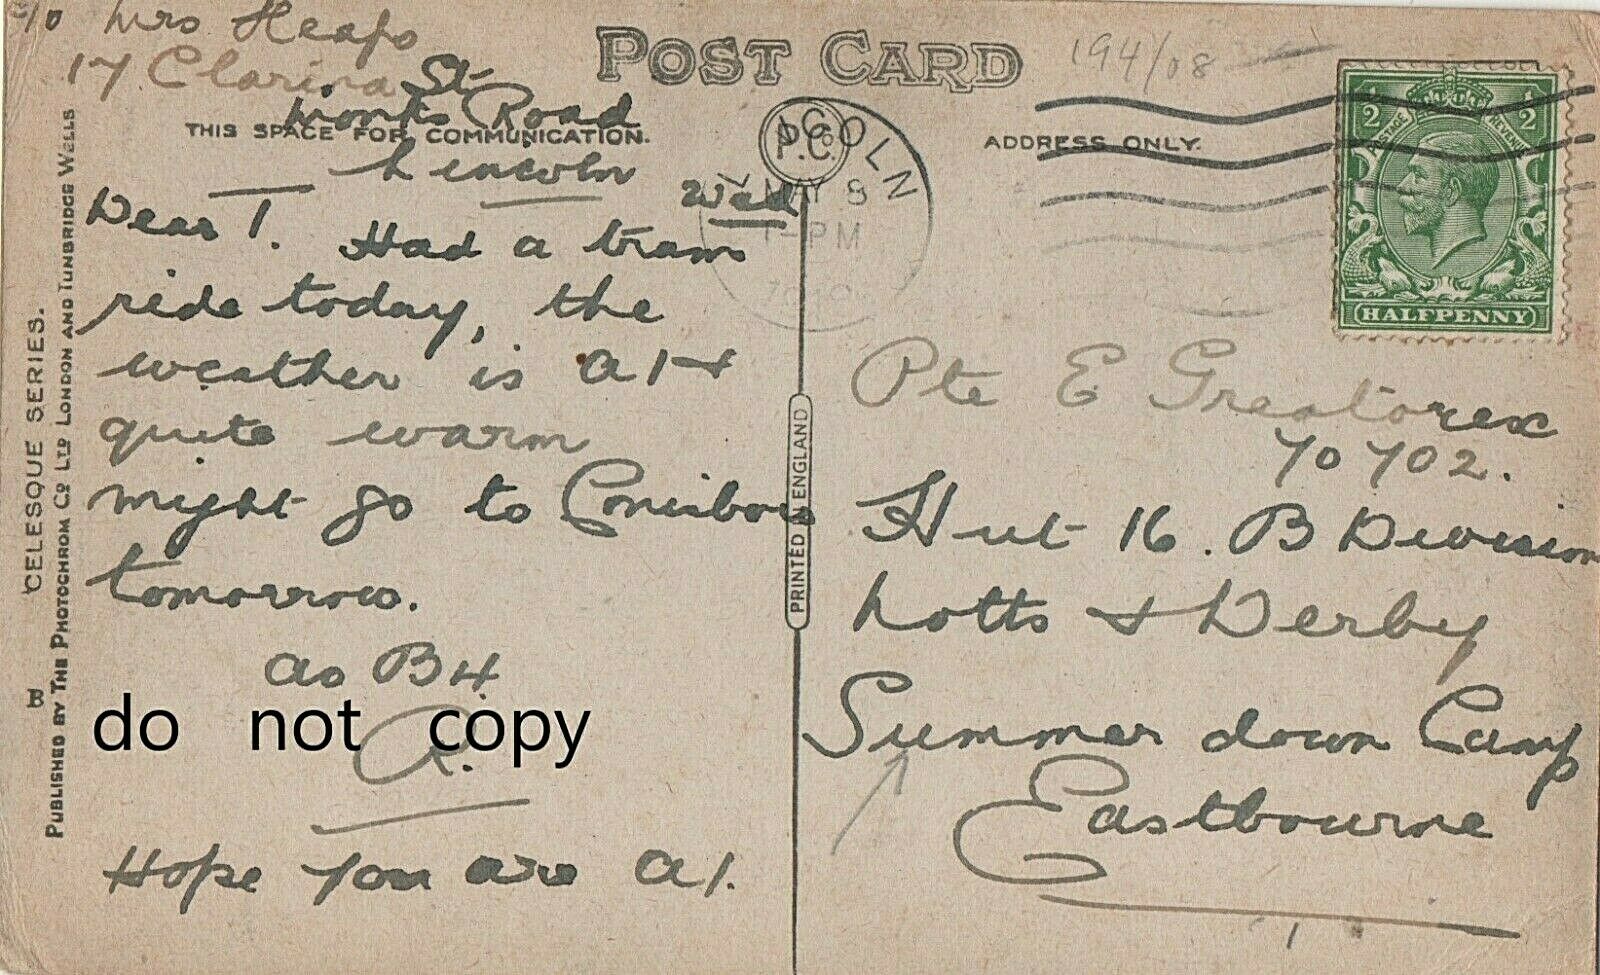 c/o Mrs Heafo
17 Clarina St
Monks Road
Lincoln
Wed
Dear 1. Had a tram
ride today, the
weather is A1 &
quite warm
might go to
tomorrow.
as B4.
R.
Hope you are A1.
POST CARD
THIS SPACE FOR COMMUNICATION.
P.C.
ADDRESS ONLY.
194/08
COLN
MAY 8
1-PM
1/2 1/2
POSTAGE REVENUE
HALFPENNY
Pte E Greatorex
70702.
Hut 16. B Division
Notts & Derby
Summer down Camp
Eastbourne
PRINTED IN ENGLAND
B CELESQUE SERIES.
PUBLISHED BY THE PHOTOCHROM CO LTD LONDON AND TUNBRIDGE WELLS
do not copy